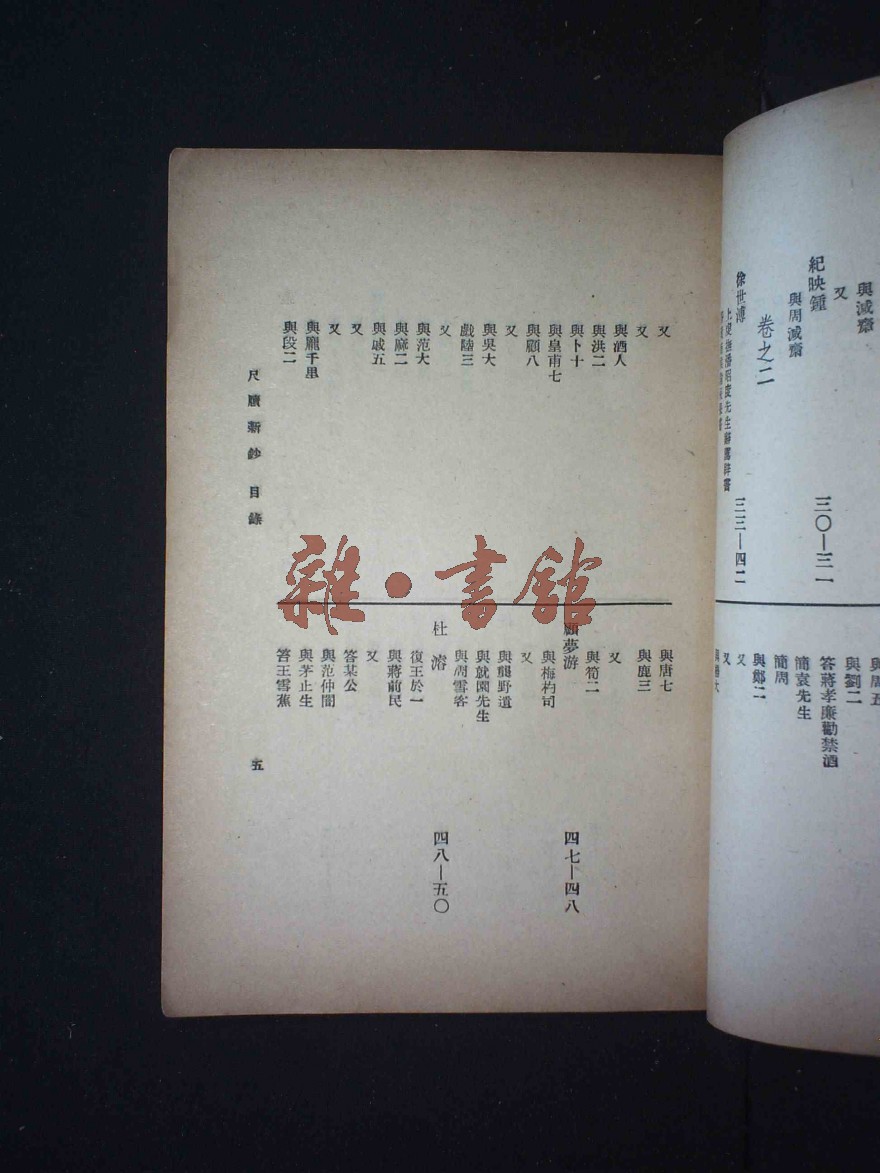 與減齋
又
紀映鍾
三〇—三一
與周減齋
卷之二
徐世溥
三三—四二
與劉二
答蔣孝廉勸禁酒
簡袁先生
簡周
與鄭二
又
又
又
又
與酒人
與洪二
與卜十
與皇甫七
與顧八
又
與吳大
戲陸三
又
與范大
與麻二
與戚五
又
又
與龐千里
與段二
與唐七
與鹿三
又
與筍二
顧夢游
四七—四八
與梅杓司
又
與龔野遺
與就園先生
與周雪客
杜濬
四八—五〇
復王於一
與蔣前民
又
答某公
與范仲闇
與茅止生
答王雪蕉
尺牘新鈔 目錄
五
雜·書館